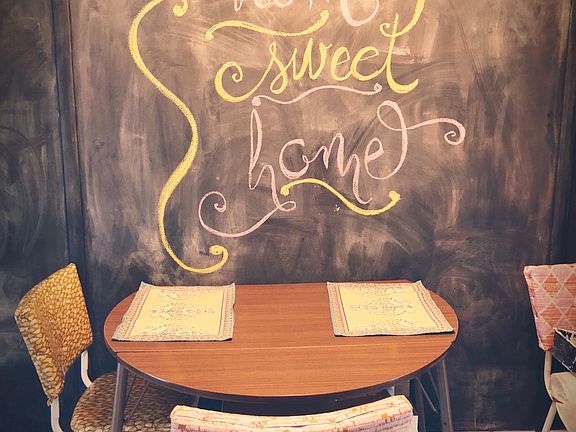 sweet
home